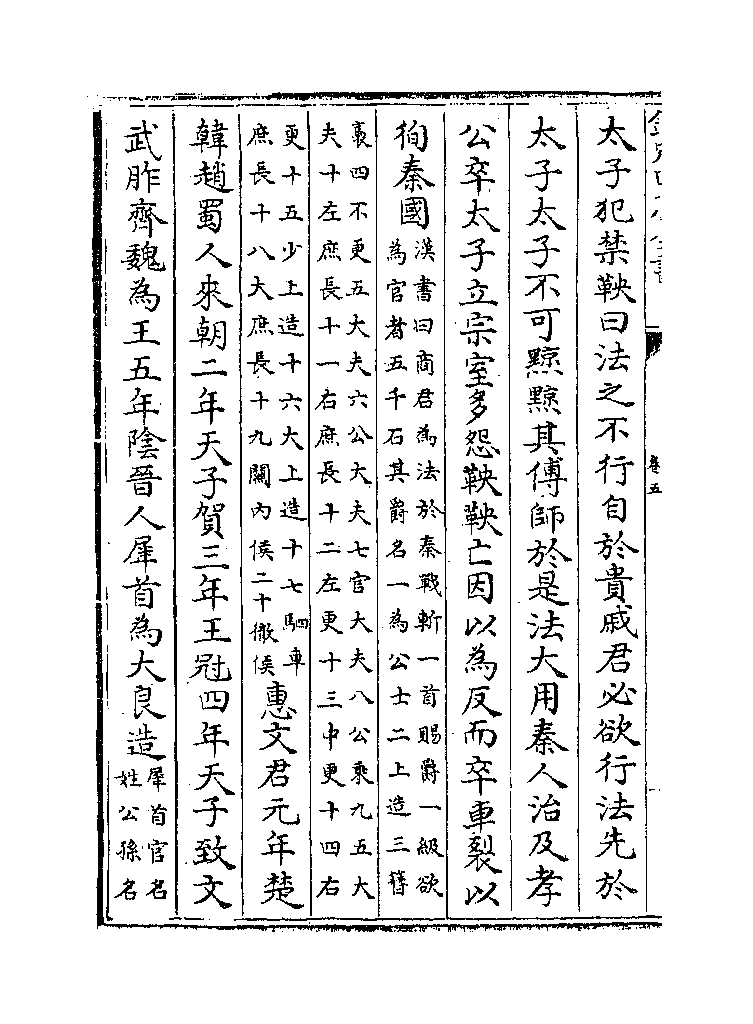 卷五
太子犯禁鞅曰法之不行自於貴戚君必欲行法先於
太子太子不可黥黥其傅師於是法大用秦人治及孝
公卒太子立宗室多怨鞅鞅亡因以為反而卒車裂以
徇秦國漢書曰商君為法於秦戰斬一首賜爵一級欲
為官者五千石其爵名一為公士二上造三簪
褭四不更五大夫六公大夫七官大夫八公乘九五大
夫十左庶長十一右庶長十二左更十三中更十四右
更十五少上造十六大上造十七駟車
庶長十八大庶長十九關内侯二十徹侯惠文君元年楚
韓趙蜀人來朝二年天子賀三年王冠四年天子致文
武胙齊魏為王五年陰晉人犀首為大良造犀首官名
姓公孫名